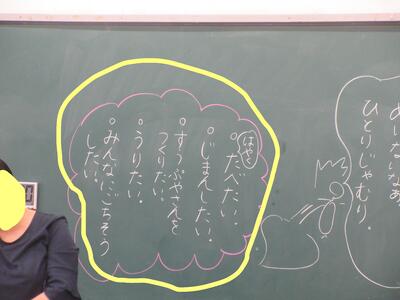 はやく
○たべたい。
○じまんしたい。
○すうぷやさんを
つくりたい。
○うりたい。
○みんなにごちそう
したい。
ひとりじゃむり。